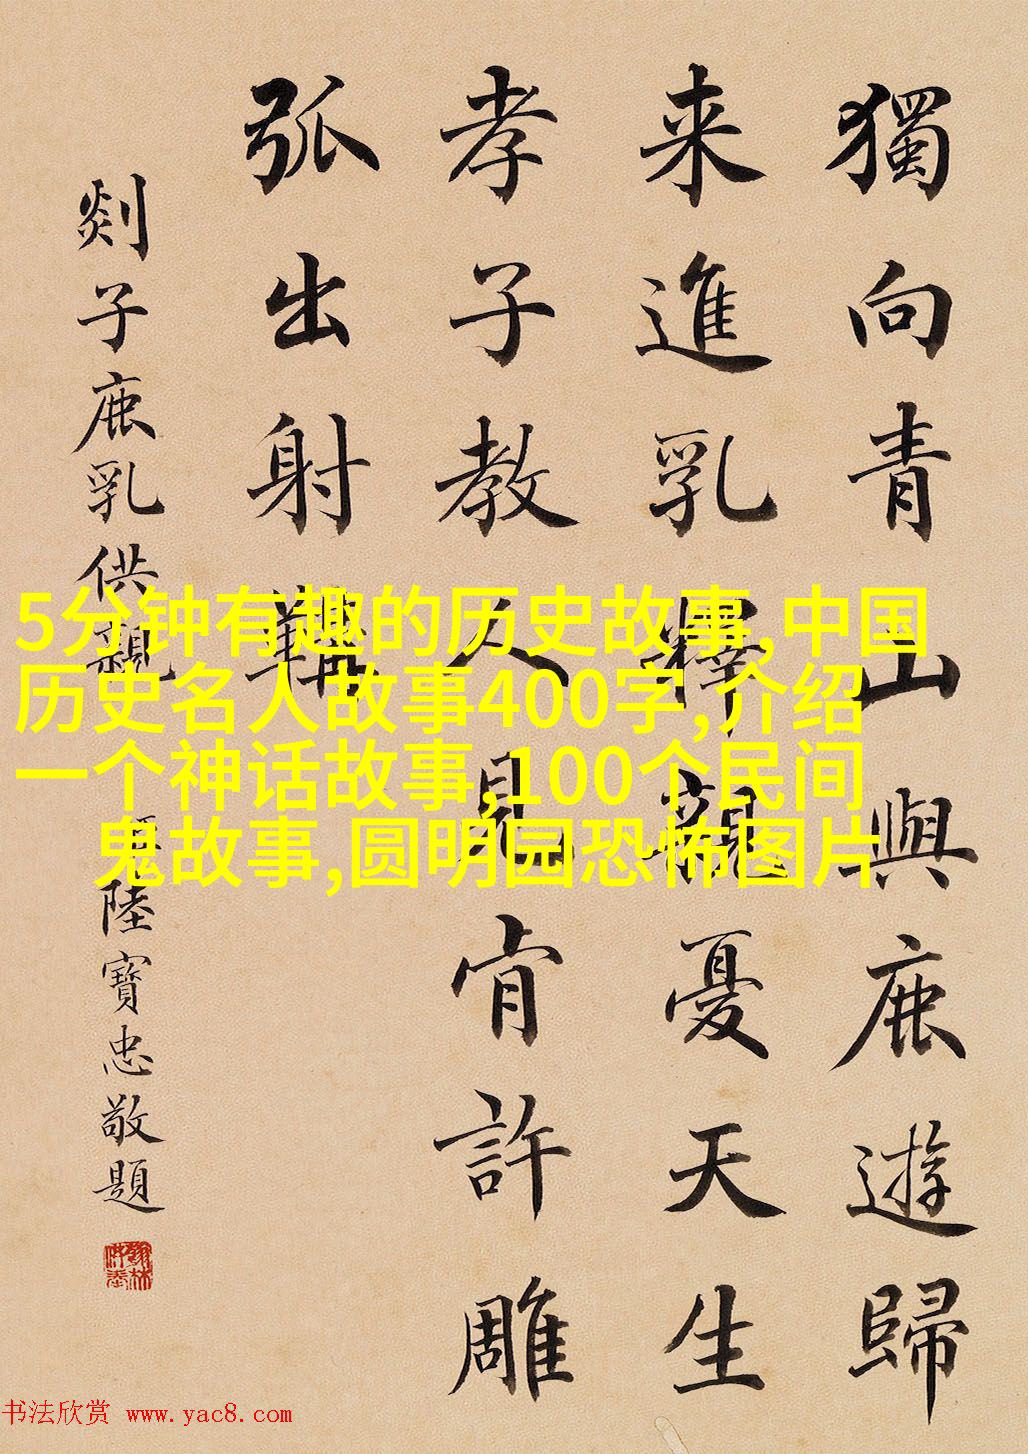 獨向青山與鹿遊歸
来進乳釋親憂天生
孝子教人見肯許雕
弧出射韝
剡子鹿乳供親
臣陸寶忠敬題
5分钟有趣的历史故事,中国
历史名人故事400字,介绍
一个神话故事,100个民间
鬼故事,圆明园恐怖图片
书法欣赏 www.yac8.com